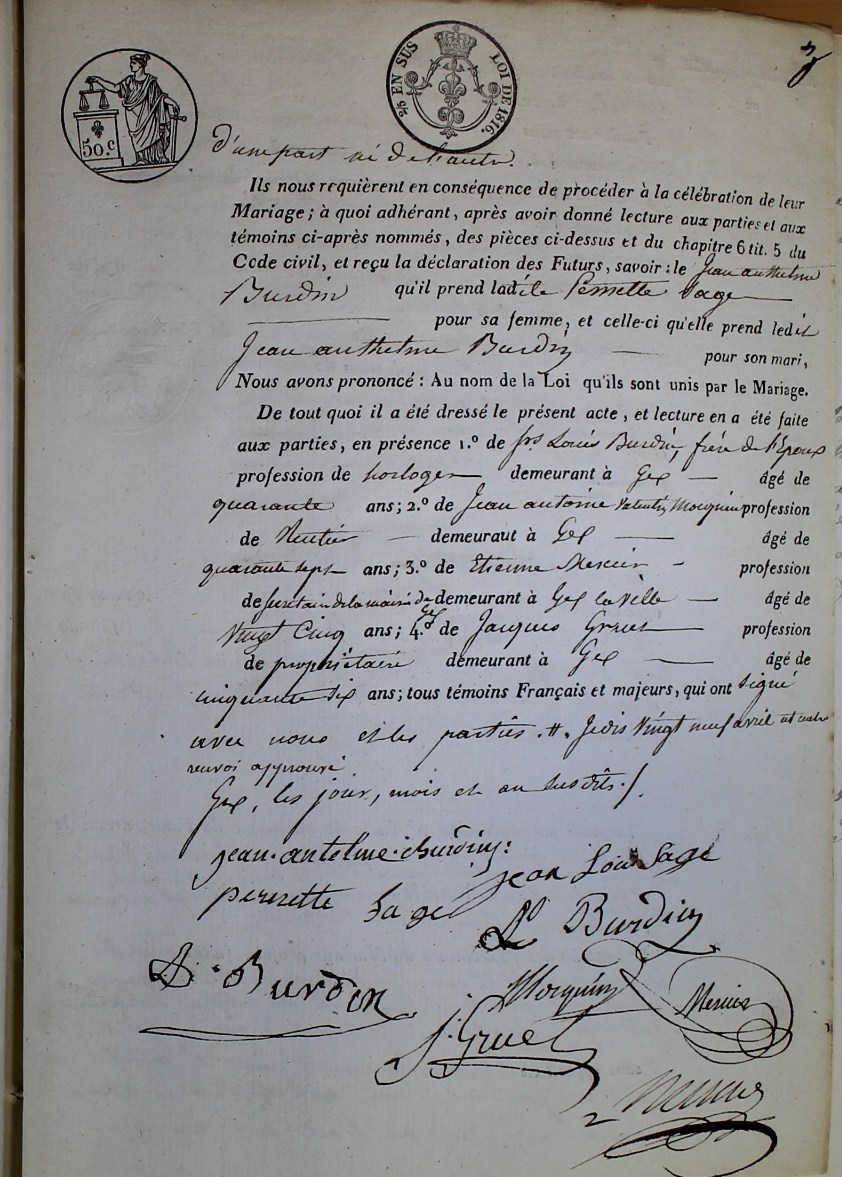 50.c
% EN SUS LOI DE 1816.
d'une part né de l'autre.
Ils nous requièrent en conséquence de procéder à la célébration de leur
Mariage ; à quoi adhérant, après avoir donné lecture aux parties et aux
témoins ci-après nommés, des pièces ci-dessus et du chapitre 6 tit. 5 du
Code civil, et reçu la déclaration des Futurs, savoir : le Jean anthelme
Burdin qu'il prend ladite Pernette Sage
pour sa femme, et celle-ci qu'elle prend ledit
Jean anthelme Burdin pour son mari,
Nous avons prononcé : Au nom de la Loi qu'ils sont unis par le Mariage.
De tout quoi il a été dressé le présent acte, et lecture en a été faite
aux parties, en présence 1.º de frs Louis Burdin, frère de l'Epoux
profession de horloger demeurant à Gex âgé de
quarante ans; 2.º de Jean antoine Valentin Mocquin profession
de Rentier demeurant à Gex âgé de
quarante sept ans; 3.º de Etienne Mercier profession
de secrétaire de la mairie de Gex demeurant à Gex la ville âgé de
Vingt Cinq ans; 4.º de Jacques Gruet profession
de propriétaire demeurant à Gex âgé de
cinquante six ans; tous témoins Français et majeurs, qui ont signé
avec nous et les parties. #. Je dis Vingt neuf avril
renvoi approuvé
Gex, les jour, mois et an susdits./.
jean. antelme. Burdin:
jean Louis Sage
pernette Sage
Ls Burdin
Burdin
Mocquin
Mercier
J. Gruet